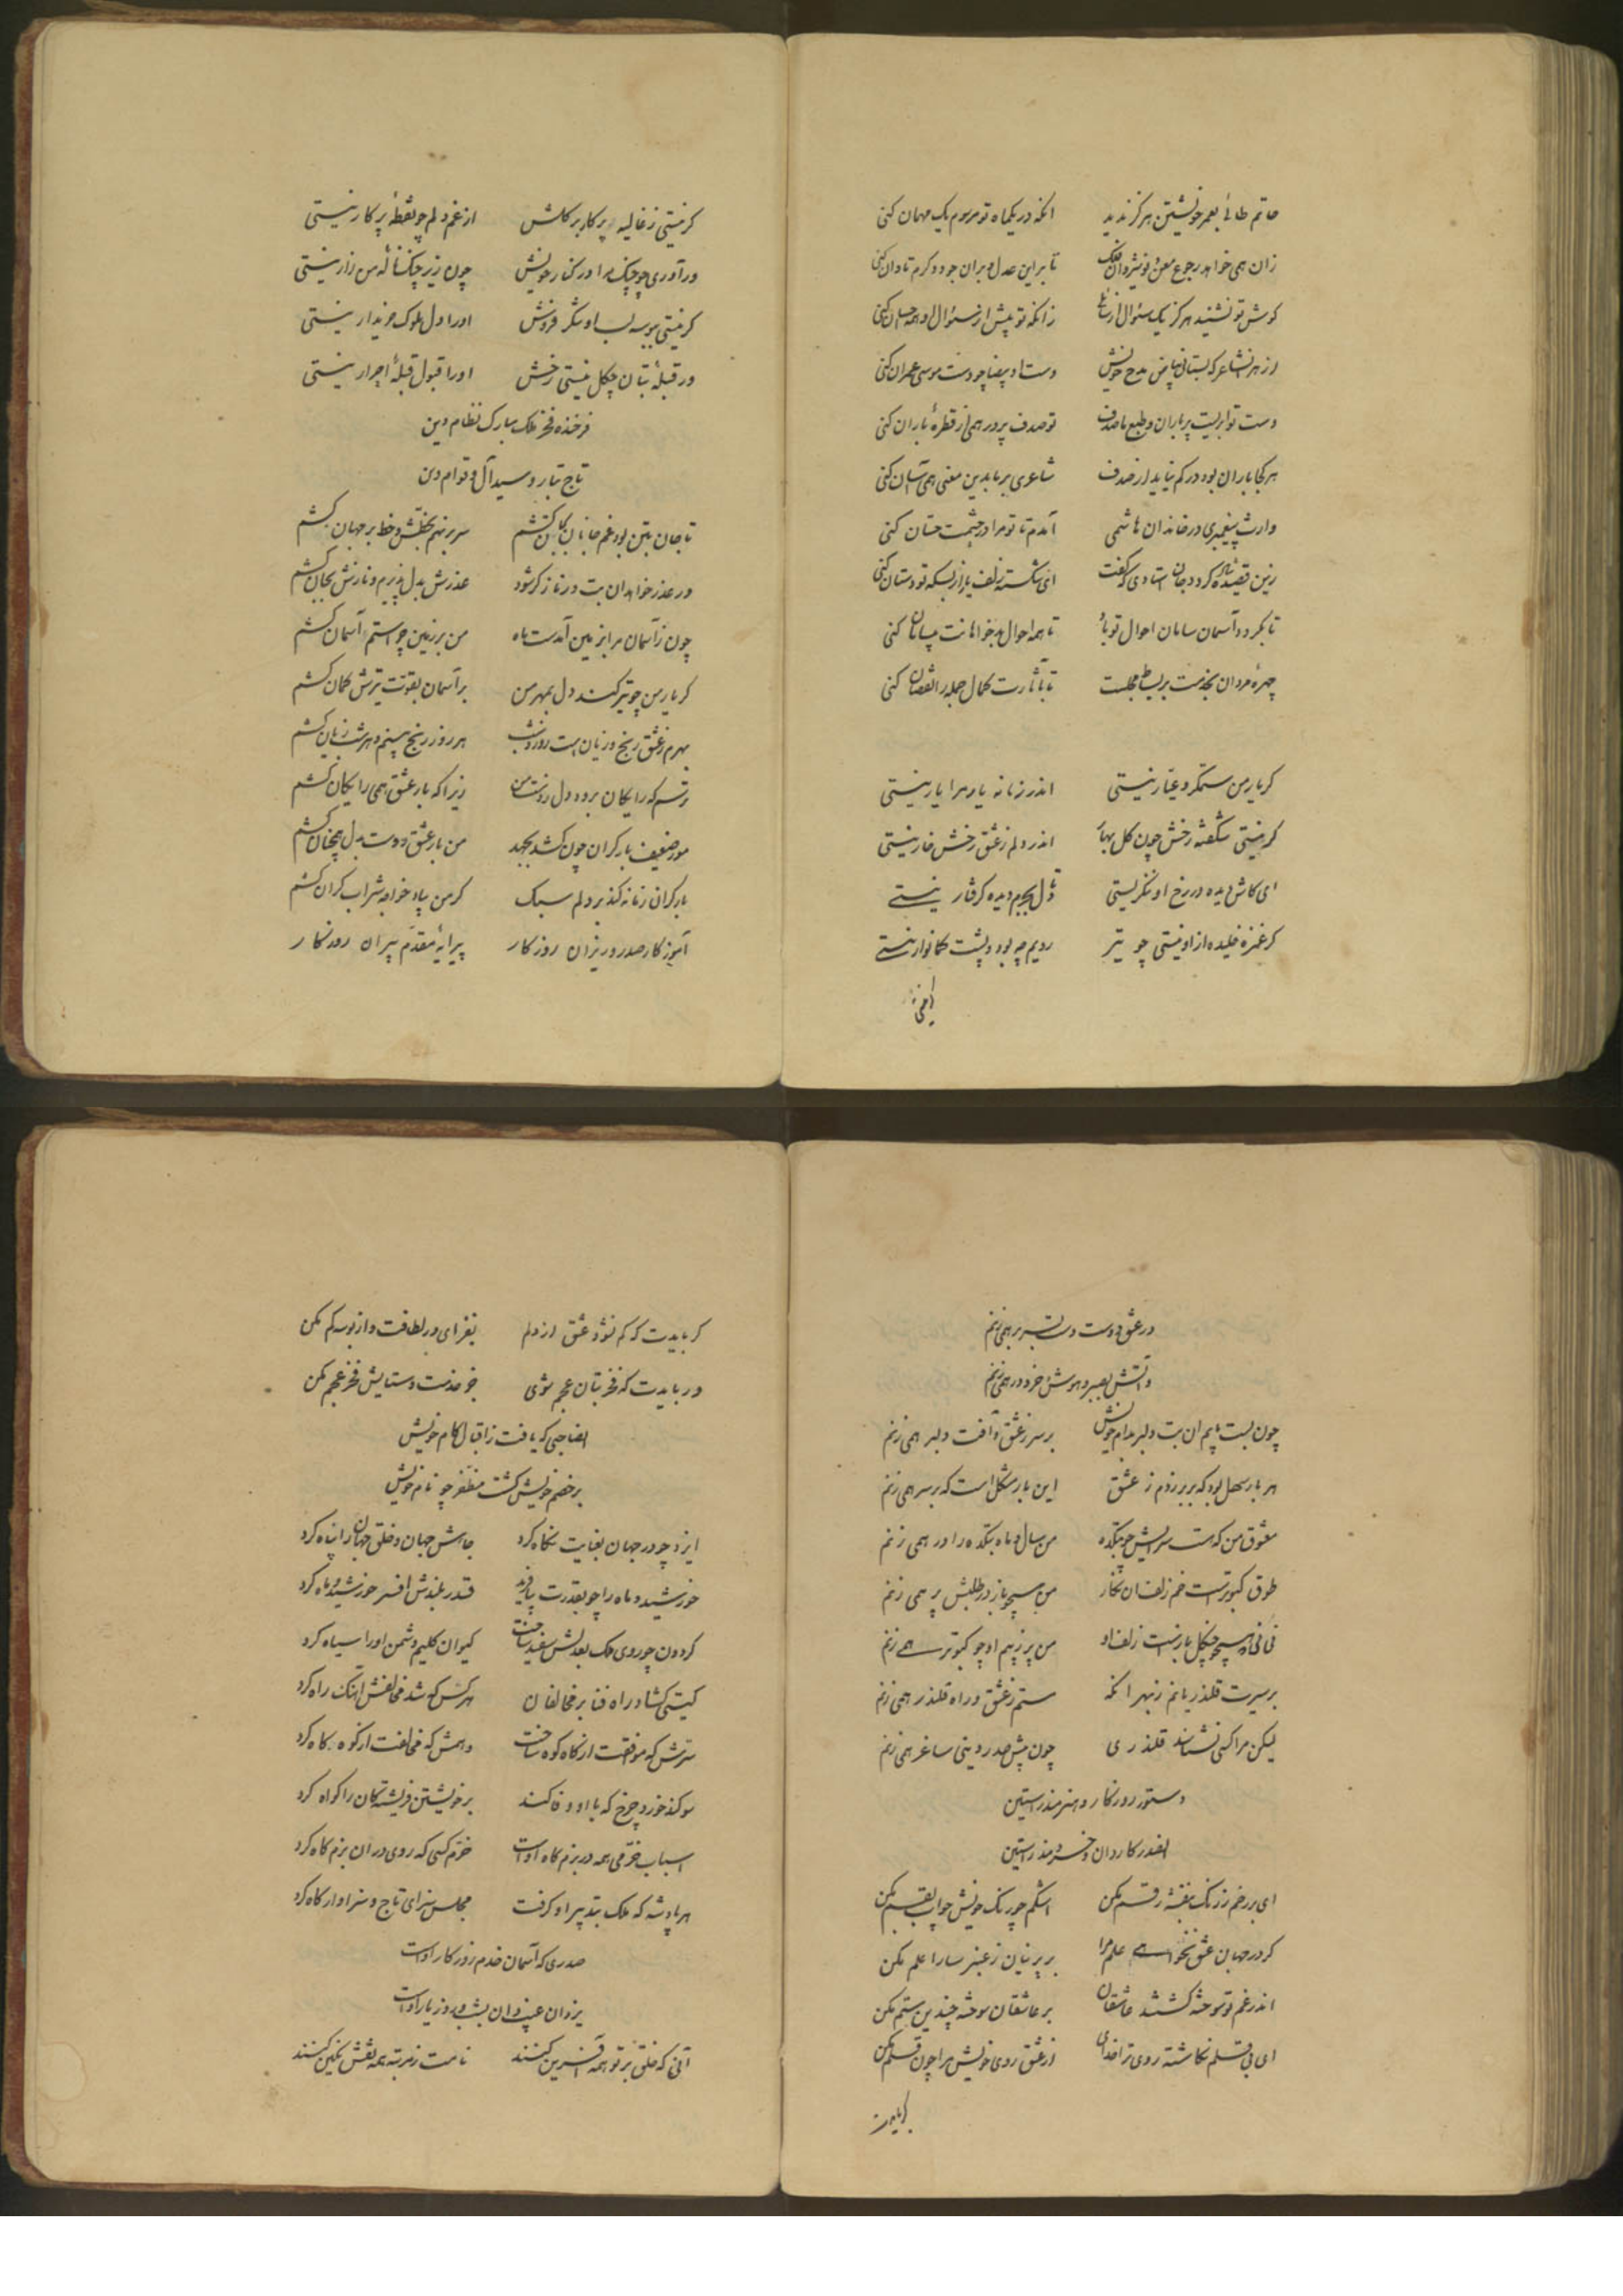 حاتم طائی بعمر خویشتن هرگز ندید انکه در یکماه تو مرسوم یک مهمان کنی
زان همی خواهد رجوع معن و نوشیروان فلک تا بر این عدل و بران جود و کرم تاوان کنی
کوش تو نشنید هرگز یک سئوال از زانکه تو پیش از سئوال او همه احسان کنی
از هر انشاعر که بستانی بیاض مدح خویش دست او بیضا چو دست موسی عمران کنی
دست تو ابریست پر باران و طبع ما صدف تو صدف پرور همی از قطرهٔ باران کنی
هر کجا باران بود در کم نیاید از صدف شاعری بر ما بدین معنی همی آسان کنی
وارث پیغمبری در خاندان هاشمی آمدم تا تو مرا در خدمت حسان کنی
زین قصیده استادی که گفت ای شکسته زلف یار از بسکه تو دستان کنی
تا بکردد آسمان سامان احوال تو باد تا همه احوال بدخواهانت بیسامان کنی
چهرهٔ مردان بخدمت بر بساط مجلست تا کمال جمله را نقصان کنی
کر یار من ستمکر و عیار نیستی اندر زمانه یاور مرا یار نیستی
کر نیستی شکفته رخش چون کل بهار اندر دلم ز عشق رخش خار نیستی
ای کاش دیده در رخ او ننگریستی تا دل بجرم دیده کرفتار نیستی
کر غمزه خلیده از او نیستی چو تیر رویم چه بود و پشت کمانوار نیستی
کر نیستی
کر نیستی ز غالیه پرکار بر کلش از غم دلم چو نقطهٔ پرکار نیستی
ور آوری چو چنک مرا در کنار خویش چون زیر چنک نالهٔ من زار نیستی
کر نیستی ببوسه لب او شکر فروش او را دل ملوک خریدار نیستی
ور قبلهٔ بتان چکل نیستی رخش او را قبول قبلهٔ احرار نیستی
فرخنده فخر ملک مبارک نظام دین
تاج تبار و سید آل و قوام دین
تا جان بتن بود غم جانان بجان کشم سر بر نهم بخطش و خط بر جهان کشم
ور عذر خواهد ان بت و ر ناز کر شود عذرش بدل پذیرم و نازش بجان کشم
چون ز آسمان مرا بزمین آمدست ماه من بر زمین چو استم آسمان کشم
کر یار من چو تیر کند دل بمهر من بر آسمان بقوت تیرش کمان کشم
بهرم ز عشق رنج و زیان است روز و شب هر روز رنج بینم و هر شب زیان کشم
ترسم که رایکان برود دل ز دست من زیرا که بار عشق همی رایکان کشم
مور ضعیف بار کران چون کشد بجهد من بار عشق دوست بدل همچنان کشم
بار کران زمانه کند بر دلم سبک کر من بیاد خواجه شراب کران کشم
آموزکار صدر وزیران روزکار پیرایهٔ مقدم پیران روزکار
در عشق دوست دست بسر بر همی زنم
و آتش بصبر و هوش و خرد در همی زنم
چون بست پایم ان بت دلبر بدام خویش بر سر ز عشق و آفت دلبر همی زنم
هر بار سهل بود که بر بر زدم ز عشق این بار مشکل است که بر سر همی زنم
معشوق من که هست سرایش چو بتکده من سال و ماه بتکده را در همی زنم
طوق کبوترست خم زلف ان نکار من همچو باز در طلبش پر همی زنم
نی نی که همچو چنکل باز است زلف او من پر ز بیم او چو کبوتر همی زنم
بر سیرت قلندریانم ز بهر انکه ستم ز عشق و راه قلندر همی زنم
لیکن مرا کسی نشناسد قلندری چون پیش صدر دینی ساغر همی زنم
دستور روزکار و هنرمند راستین
الغ کاردان و خردمند راستین
ای بر رخم ز رنک بنفشه رقم مکن اشکم چو رنک خویش چو آب بقم مکن
کر در جهان عشق نخواهی علم مرا بر پرنیان ز عنبر سارا علم مکن
اندر غم تو سوخته کشتند عاشقان بر عاشقان سوخته چندین ستم مکن
ای بی قلم نکاشته روی ترا خدای از عشق روی خویش مرا چون قلم مکن
کر بایدت
کر بایدت که کم نشود عشق از دلم بفزای در لطافت و از بوسه کم مکن
ور بایدت که فخر بتان عجم شوی جز خدمت و ستایش فخر عجم مکن
انصاحبی که یافت ز اقبال کام خویش
بر خصم خویش کشت مظفر چو نام خویش
ایزد چو در جهان بعنایت نکاه کرد جاهش جهان و خلق جهان را پناه کرد
خورشید و ماه را چو بقدرت بیافرید قدر بلندش افسر خورشید و ماه کرد
کردون چو روی ملک بعدلش سفید ساخت کیوان کلیم دشمن او را سیاه کرد
کیتی کشاد راه فنا بر مخالفان هر کس که شد مخالفش آهنک راه کرد
سترش که موافقت از کاه کوه ساخت و همش که مخالفت از کوه کاه کرد
سوکند خورد چرخ که با او وفا کند بر خویشتن فریشتکان را کواه کرد
اسباب خرمی همه در بزم کاه اوست خرم کسی که روی در ان بزم کاه کرد
هر پادشه که ملک بتدبیر او کرفت مجلس سزای تاج و سزاوار کاه کرد
صدری که آسمان خدم روزکار اوست
یزدان غیب دان بشب و روز یار اوست
آنی که خلق بر تو همه آفرین کنند نامت ز مرتبه همه نقش نکین کنند